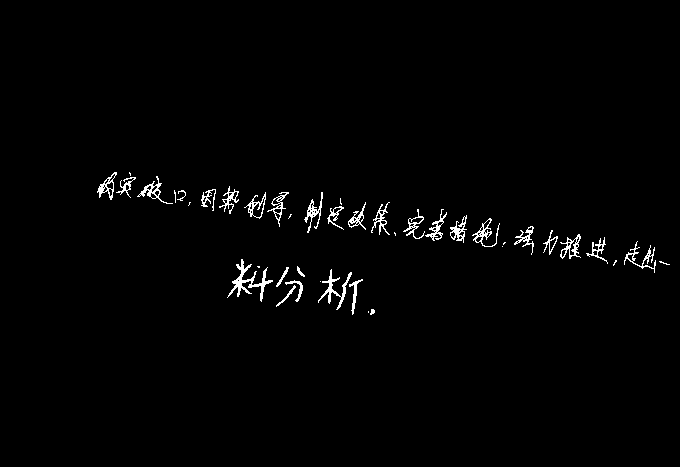 的突破口,因势利导,制定政策、完善措施,强力推进,走出一
料分析.